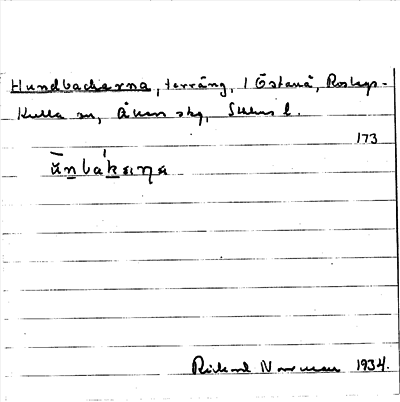 Hundbackarna, terräng, 1 Östanå, Roslags-
Kulla sn, Åkers skg, Sthms l.
173
ŭnbákaɳa
Rickard 1934.